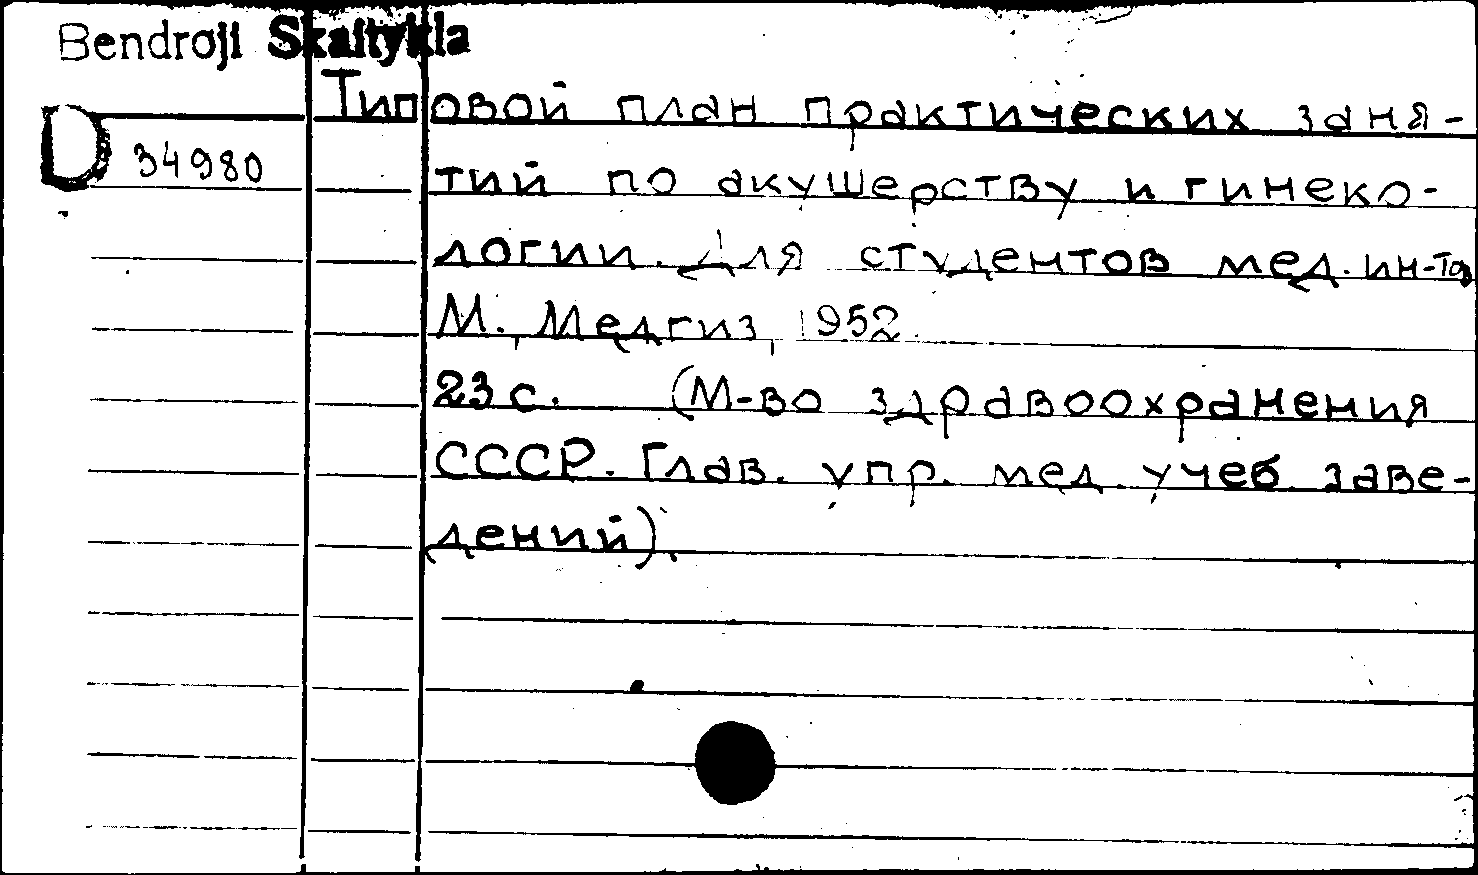 Bendroji Skaitykla
Типовой план практических заня-
D 34980
тий по акушерству и гинеко-
логии. Для студентов мед. ин-тов
М., Медгиз, 1952.
23 с. (М-во здравоохранения
СССР. Глав. упр. мед. учеб. заве-
дений).